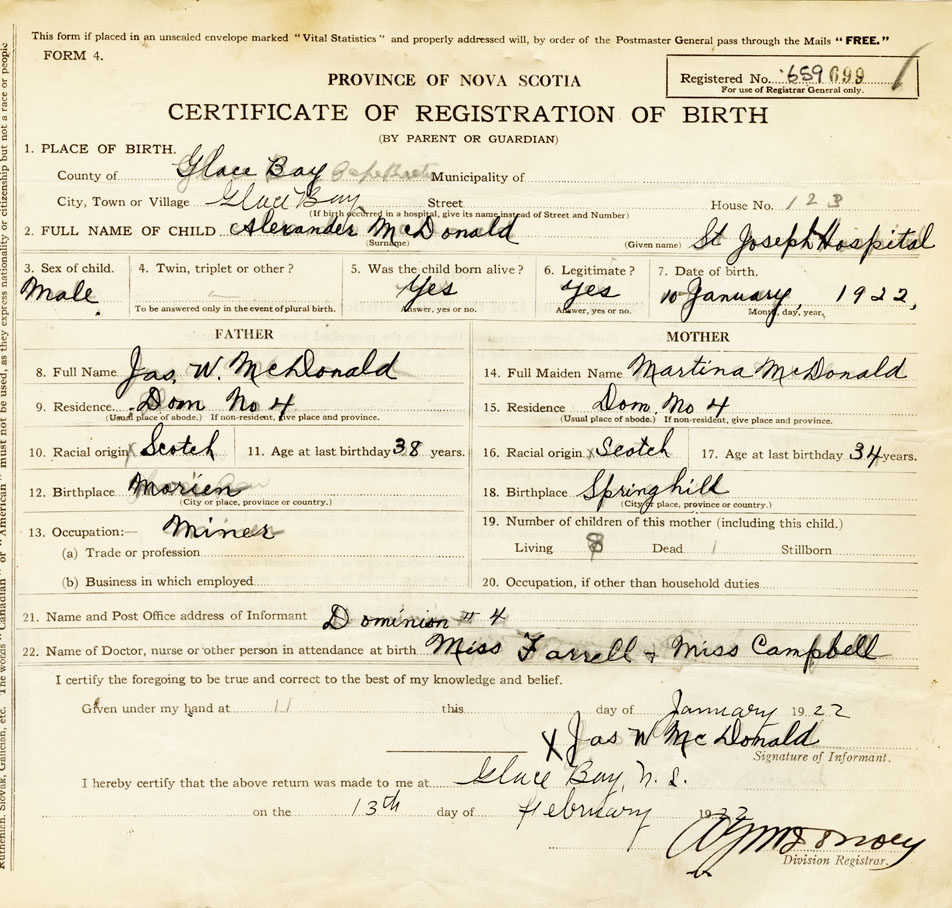 This form if placed in an unsealed envelope marked "Vital Statistics" and properly addressed will, by order of the Postmaster General pass through the Mails "FREE."
FORM 4.
PROVINCE OF NOVA SCOTIA
Registered No. 659 699
For use of Registrar General only.
CERTIFICATE OF REGISTRATION OF BIRTH
(BY PARENT OR GUARDIAN)
1. PLACE OF BIRTH.
County of Glace Bay Municipality of
City, Town or Village Glace Bay Street House No. 123
(If birth occurred in a hospital, give its name instead of Street and Number)
2. FULL NAME OF CHILD Alexander McDonald St Joseph Hospital
(Surname) (Given name)
3. Sex of child. 4. Twin, triplet or other? 5. Was the child born alive? 6. Legitimate? 7. Date of birth.
Male Yes Yes 10 January, 1922,
To be answered only in the event of plural birth. Answer, yes or no. Answer, yes or no. Month, day, year,
FATHER MOTHER
8. Full Name Jas. W. McDonald 14. Full Maiden Name Martina McDonald
9. Residence Dom No 4 15. Residence Dom. No 4
(Usual place of abode.) If non-resident, give place and province. (Usual place of abode.) If non-resident, give place and province.
10. Racial origin x Scotch 11. Age at last birthday 38 years. 16. Racial origin x Scotch 17. Age at last birthday 34 years.
12. Birthplace Morien 18. Birthplace Springhill
(City or place, province or country.) (City or place, province or country.)
13. Occupation:— Miner 19. Number of children of this mother (including this child.)
(a) Trade or profession Living 8 Dead 1 Stillborn
(b) Business in which employed 20. Occupation, if other than household duties
21. Name and Post Office address of Informant Dominion # 4
22. Name of Doctor, nurse or other person in attendance at birth Miss Farrell & Miss Campbell
I certify the foregoing to be true and correct to the best of my knowledge and belief.
Given under my hand at 11 this day of January 1922
X Jas W McDonald
Signature of Informant.
I hereby certify that the above return was made to me at Glace Bay, N. S.
on the 13th day of February 1922
Division Registrar.
Ruthenian, Slovak, Galician, etc. The words "Canadian" or "American" must not be used, as they express nationality or citizenship but not a race or people